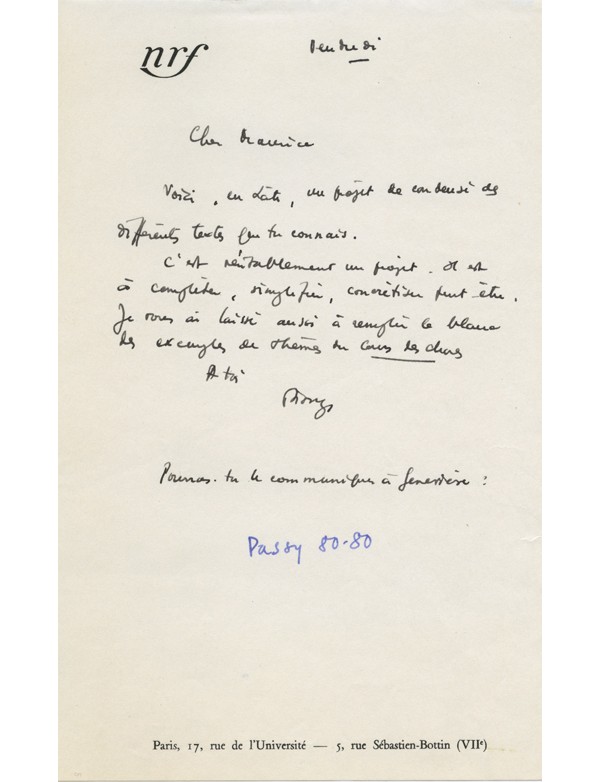 nrf
Vendredi
Cher Maurice
Voici, en hâte, un projet de condensé des
différents textes que tu connais.
C'est véritablement un projet. Il est
à compléter, simplifier, concrétiser peut-être.
Je vous ai laissé aussi à remplir le blanc
des exemples de thèmes du Cours des choses
A toi
Pourras-tu le communiquer à Geneviève :
Passy 80-80
Paris, 17, rue de l'Université — 5, rue Sébastien-Bottin (VIIe)